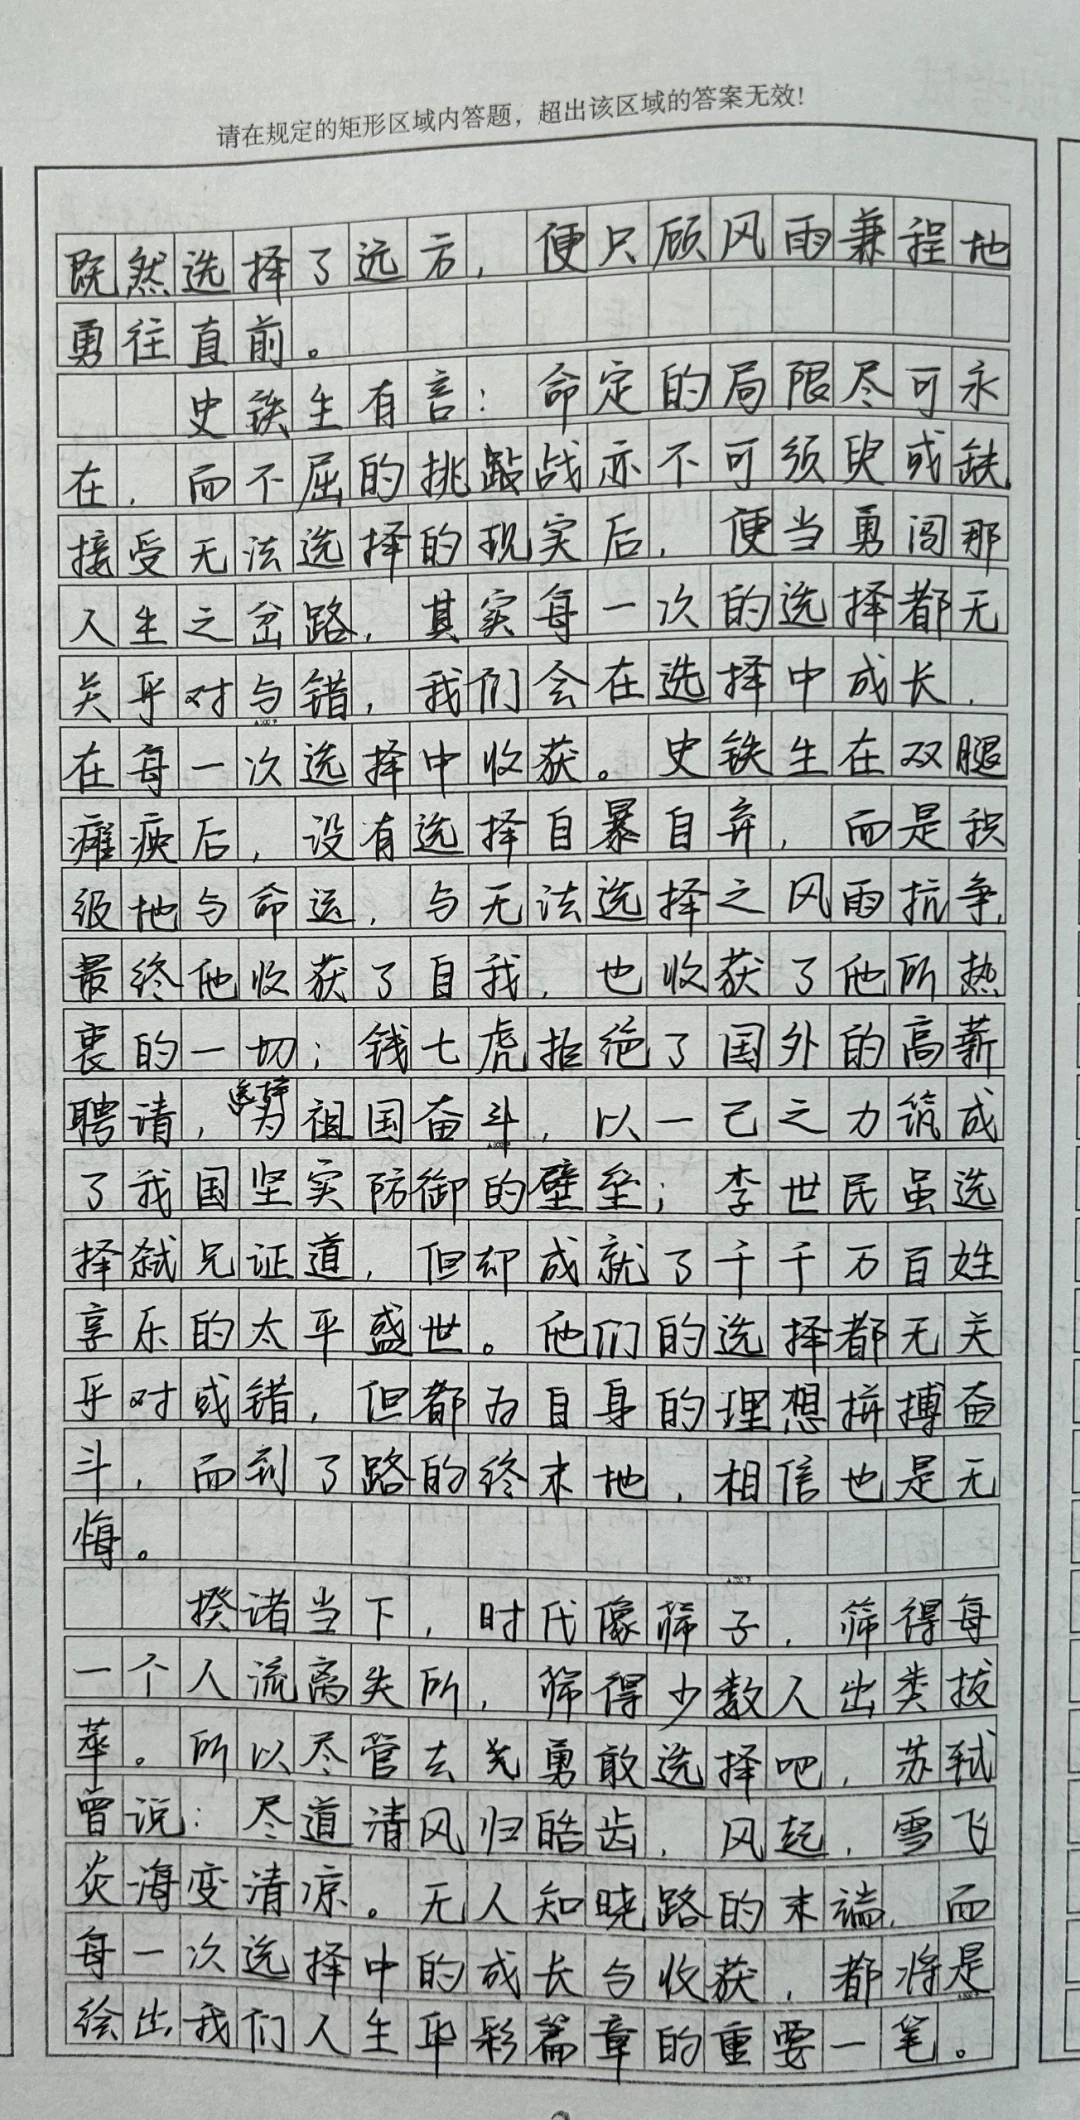 请在规定的矩形区域内答题，超出该区域的答案无效！
既然选择了远方，便只顾风雨兼程地
勇往直前。
史铁生有言：命定的局限尽可永
在，而不屈的挑战亦不可须臾或缺
接受无法选择的现实后，便当勇闯那
人生之岔路，其实每一次的选择都无
关乎对与错，我们会在选择中成长，
在每一次选择中收获。史铁生在双腿
瘫痪后，没有选择自暴自弃，而是积
极地与命运，与无法选择之风雨抗争，
最终他收获了自我，也收获了他所热
衷的一切；钱七虎拒绝了国外的高薪
聘请，选择为祖国奋斗，以一己之力筑成
了我国坚实防御的壁垒；李世民虽选
择弑兄证道，但却成就了千千万百姓
享乐的太平盛世。他们的选择都无关
乎对或错，但都为自身的理想拼搏奋
斗，而到了路的终末地，相信也是无
悔。
揆诸当下，时代像筛子，筛得每
一个人流离失所，筛得少数人出类拔
萃。所以尽管去勇敢选择吧，苏轼
曾说：尽道清风归皓齿，风起，雪飞
炎海变清凉。无人知晓路的末端，而
每一次选择中的成长与收获，都将是
绘出我们人生华彩篇章的重要一笔。